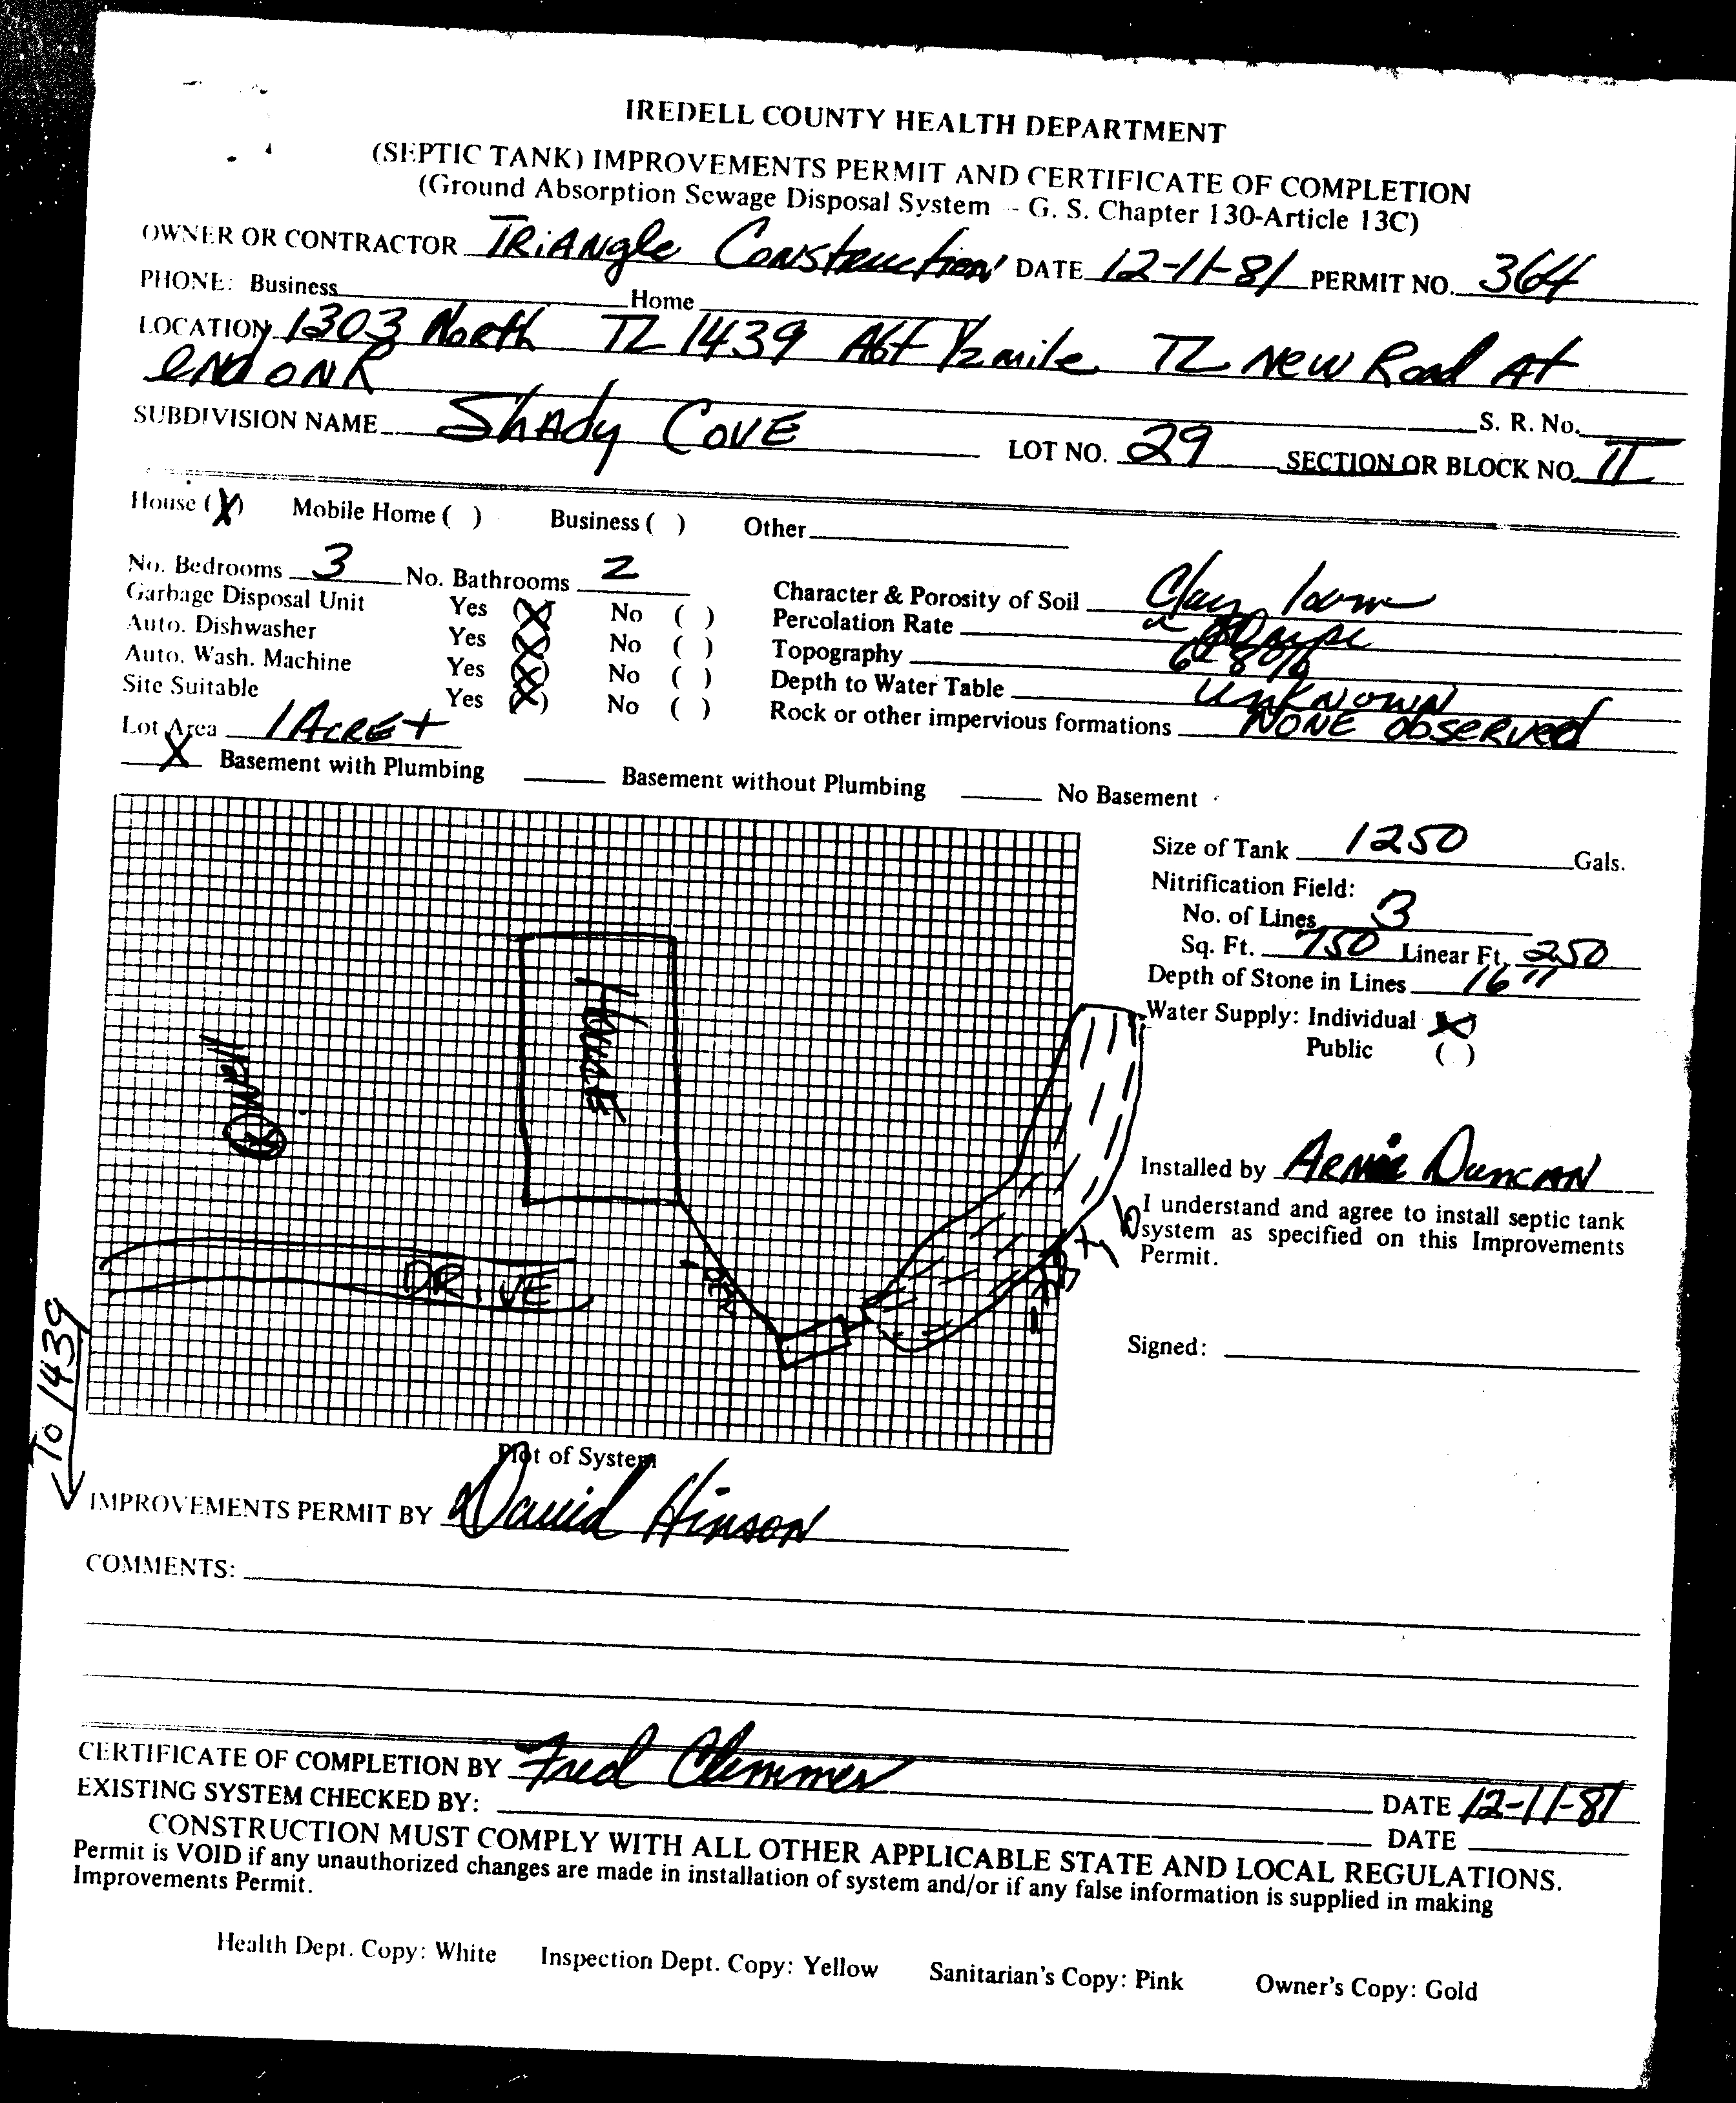 IREDELL COUNTY HEALTH DEPARTMENT
(SEPTIC TANK) IMPROVEMENTS PERMIT AND CERTIFICATE OF COMPLETION
(Ground Absorption Sewage Disposal System -- G. S. Chapter 130-Article 13C)
OWNER OR CONTRACTOR TRiANgle Construction DATE 12-11-81 PERMIT NO. 364
PHONE: Business Home
LOCATION 1303 North TL 1439 Abt 1/2 mile TL New Road At
end on R
S. R. No.
SUBDIVISION NAME Shady Cove LOT NO. 29 SECTION OR BLOCK NO. II
House (X) Mobile Home ( ) Business ( ) Other
No. Bedrooms 3 No. Bathrooms 2
Garbage Disposal Unit Yes (X) No ( )
Auto. Dishwasher Yes (X) No ( )
Auto. Wash. Machine Yes (X) No ( )
Site Suitable Yes (X) No ( )
Lot Area 1 Acre +
Character & Porosity of Soil Clay loam
Percolation Rate
Topography 6-8%
Depth to Water Table unknown
Rock or other impervious formations NONE observed
X Basement with Plumbing Basement without Plumbing No Basement
Size of Tank 1250 Gals.
Nitrification Field:
No. of Lines 3
Sq. Ft. 750 Linear Ft. 250
Depth of Stone in Lines 16"
Water Supply: Individual (X)
Public ( )
House
Well
DRIVE
To 1439
Installed by Arnie Duncan
I understand and agree to install septic tank
system as specified on this Improvements
Permit.
Signed:
Plot of System
IMPROVEMENTS PERMIT BY David Hinson
COMMENTS:
CERTIFICATE OF COMPLETION BY Fred Clemmer DATE 12-11-81
EXISTING SYSTEM CHECKED BY: DATE
CONSTRUCTION MUST COMPLY WITH ALL OTHER APPLICABLE STATE AND LOCAL REGULATIONS.
Permit is VOID if any unauthorized changes are made in installation of system and/or if any false information is supplied in making
Improvements Permit.
Health Dept. Copy: White Inspection Dept. Copy: Yellow Sanitarian's Copy: Pink Owner's Copy: Gold